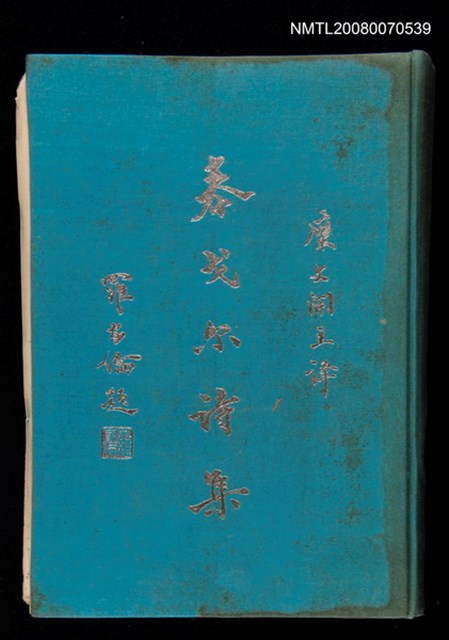 NMTL20080070539
糜文開主譯
泰戈尔诗集
羅家倫題